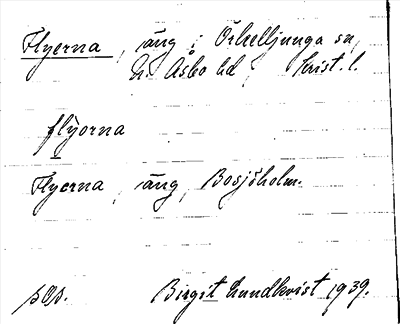 Flyerna, äng i Örkelljunga sn,
N. Åsbo hd, Krist. l.
flyorna
Flyerna, äng, Bosjöholm.
sOs. Birgit Lundkvist 1939.